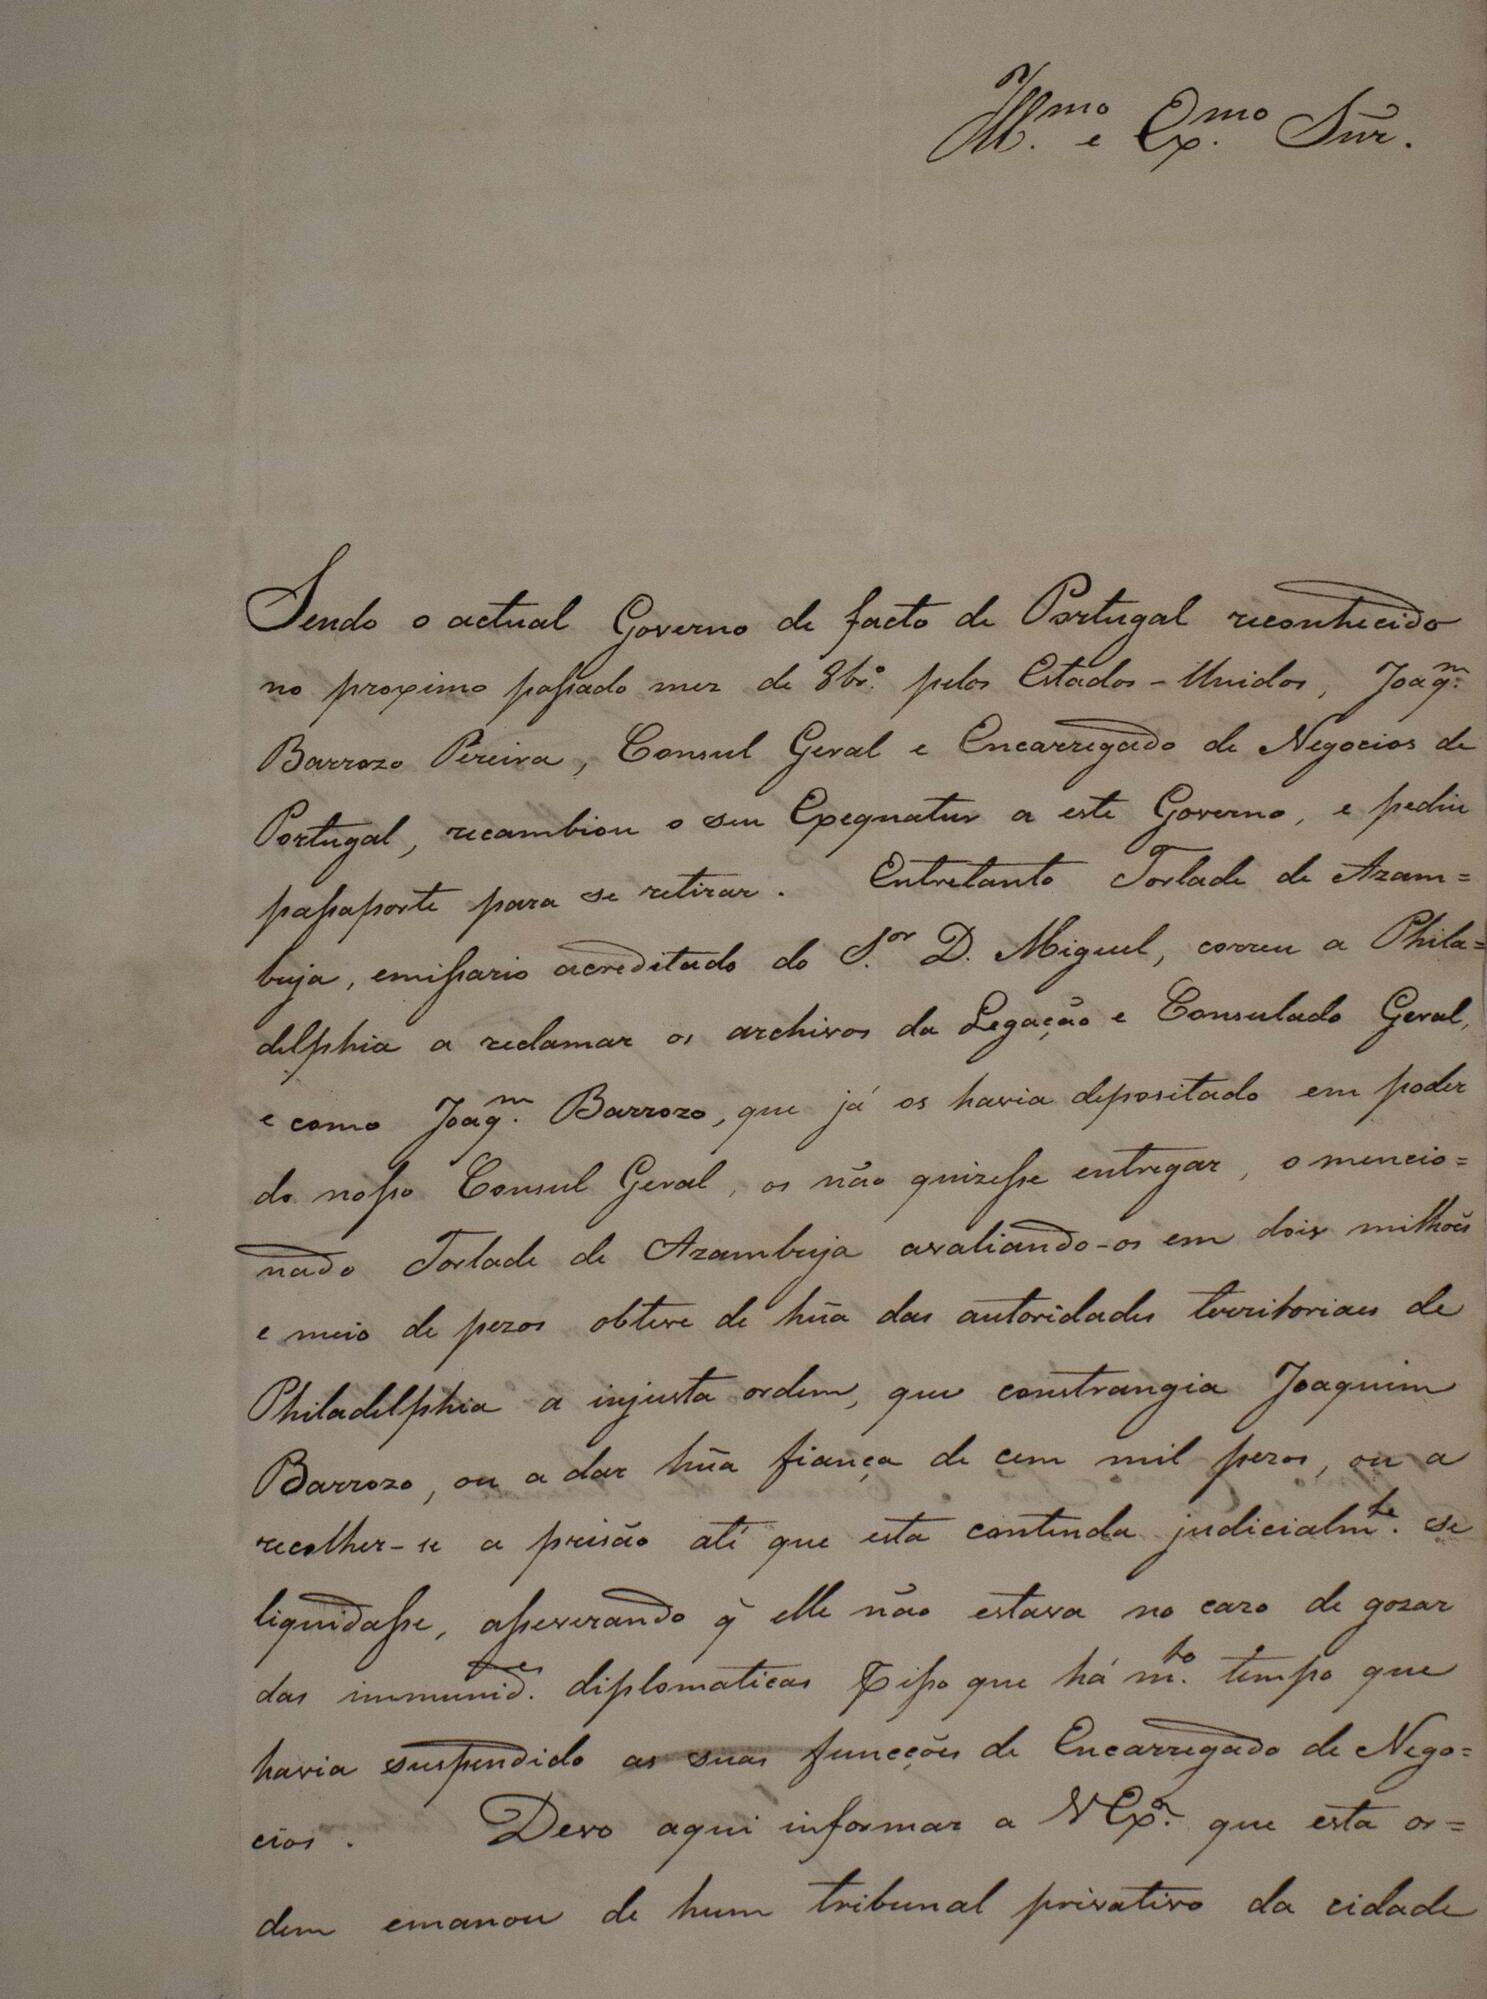 Ill.mo e Ex.mo Sñr.
Sendo o actual Governo de facto de Portugal reconhecido
no proximo passado mez de 8br.o pelos Estados-Unidos, Joaq.m
Barrozo Pereira, Consul Geral e Encarregado de Negocios de
Portugal, recambiou o seu Exequatur a este Governo, e pediu
passaporte para se retirar. Entretanto Torlade de Azam=
buja, emissario acreditado do S.or D. Miguel, correu a Phila=
delphia a reclamar os archivos da Legação e Consulado Geral,
e como Joaq.m Barrozo, que já os havia depositado em poder
do nosso Consul Geral, os não quizesse entregar, o mencio=
nado Torlade de Azambuja avaliando-os em dois milhões
e meio de pezos obteve de hũa das autoridades territoriaes de
Philadelphia a injusta ordem, que constrangia Joaquim
Barrozo, ou a dar hũa fiança de cem mil pezos, ou a
recolher-se a prisão até que esta contenda judicialm.te se
liquidasse, asseverando q̃ elle não estava no cazo de gozar
das immunid.es diplomaticas p isso que há m.to tempo que
havia suspendido as suas funcções de Encarregado de Nego=
cios. Devo aqui informar a V Ex.a que esta or=
dem emanou de hum tribunal privativo da cidade